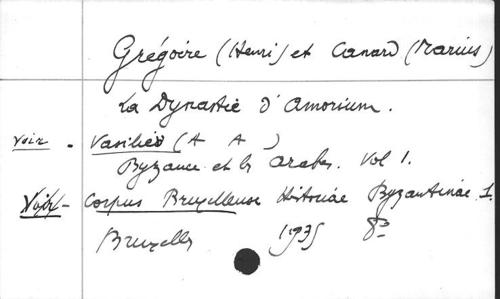 Grégoire (Henri) et Canard (Marius)
La Dynastie d'Amorium.
Voir - Vasiliev (A A)
Byzance et les Arabes. Vol 1.
Voir - Corpus Bruxellense Historiae Byzantinae 1.
Bruxelles 1935 8º